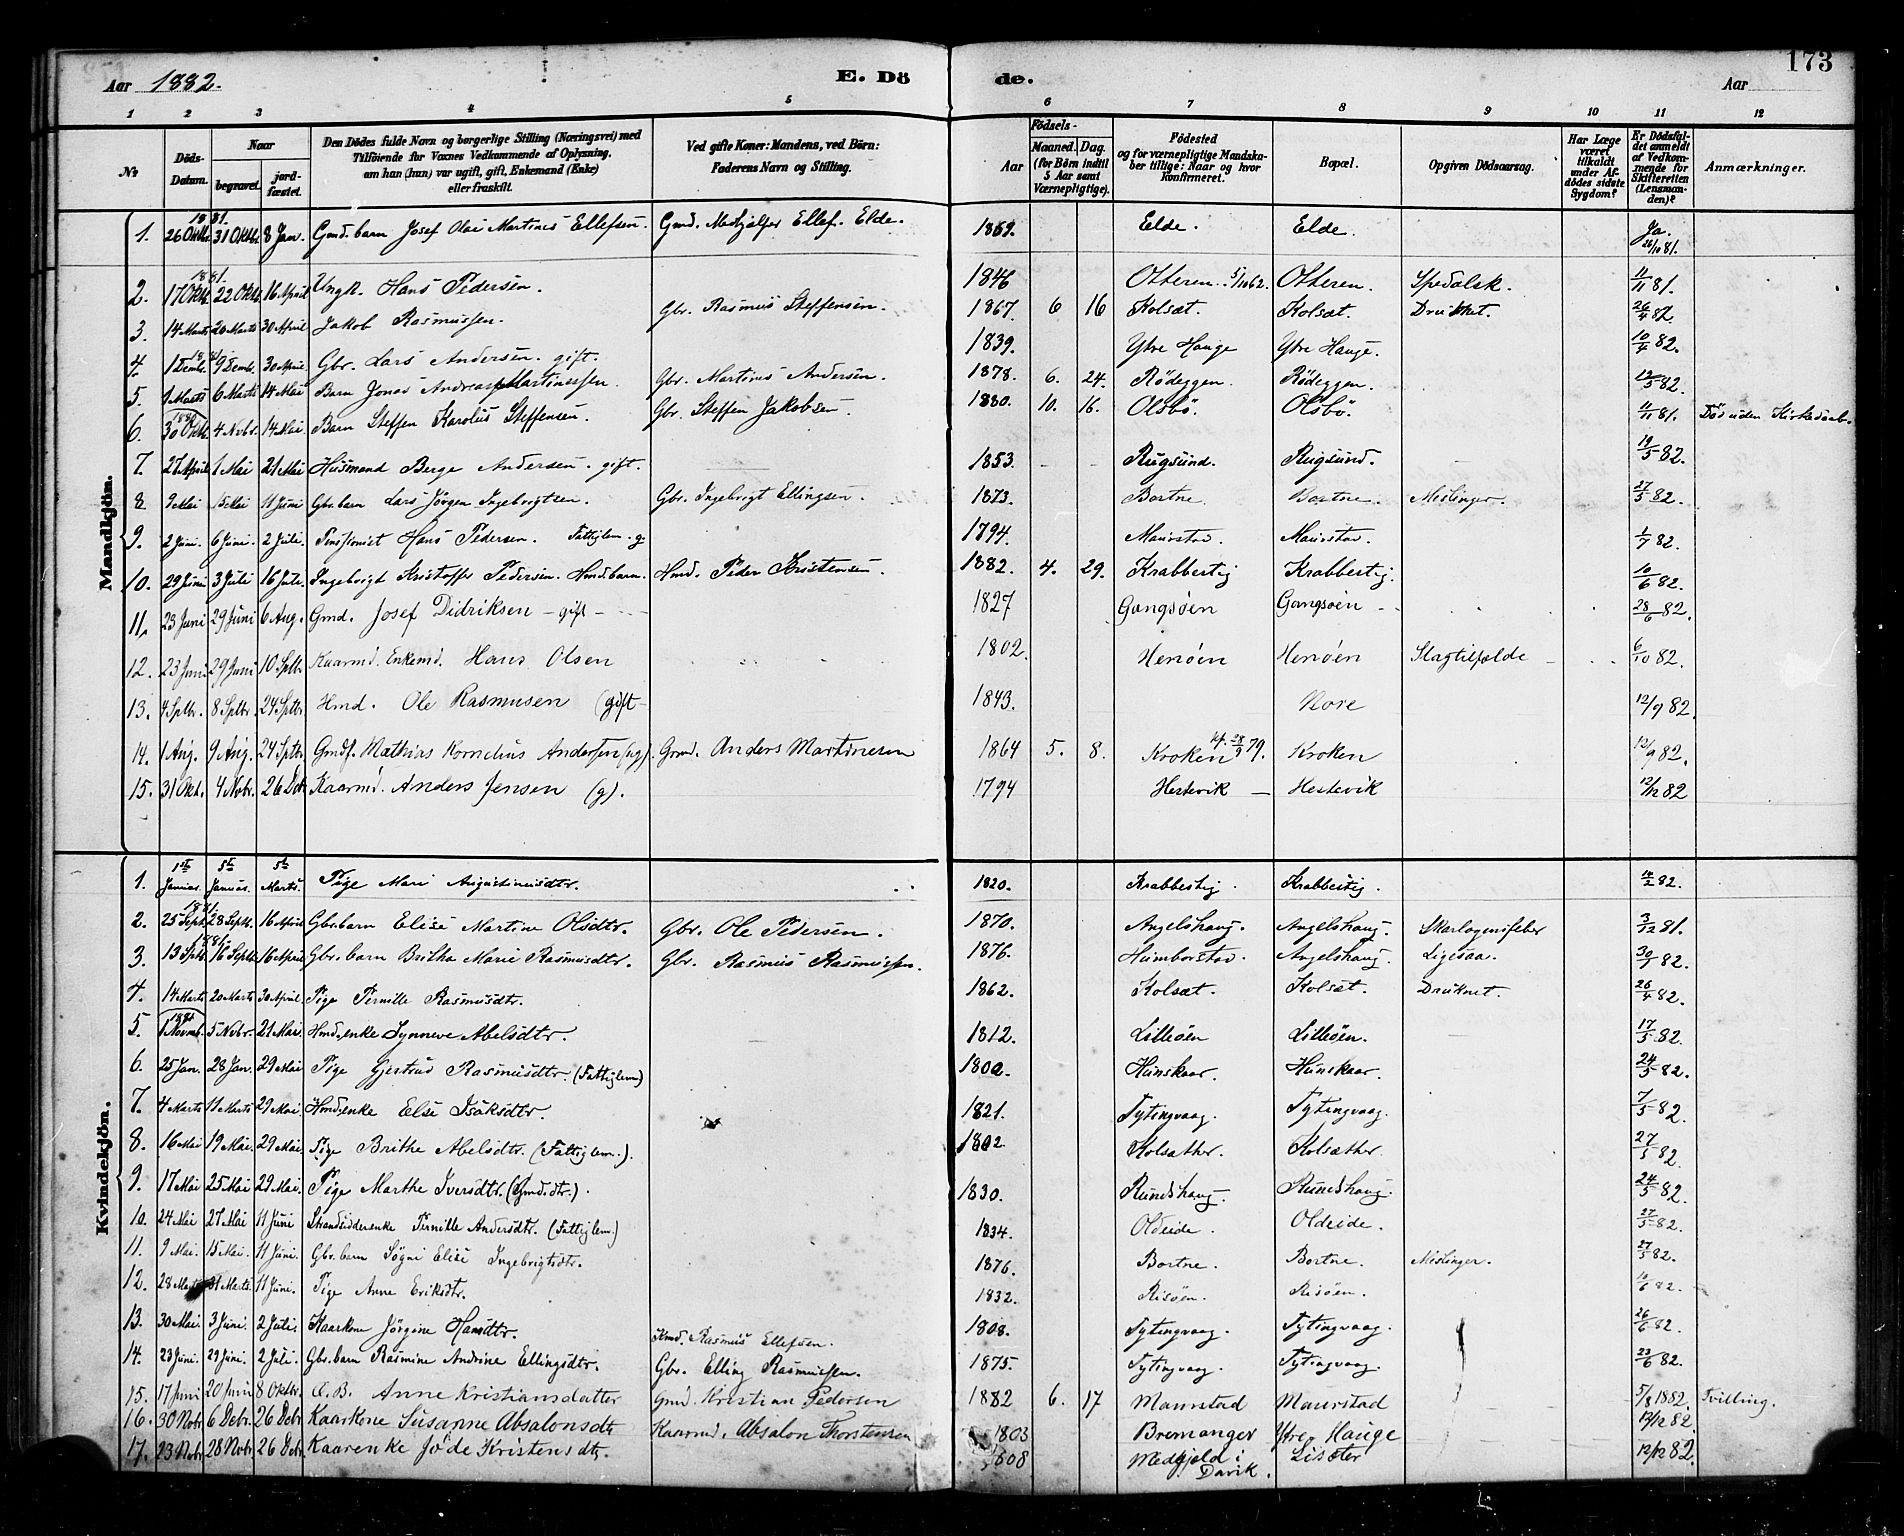 173
Aar 1882. E. Dö de. Aar
1 2 3 4 5 6 7 8 9 10 11 12
№ Döds-Datum. Naar begravet. jordfæstet. Den Dödes fulde Navn og borgerlige Stilling (Næringsvei) med Tilföiende for Voxnes Vedkommende af Oplysning, om han (hun) var ugift, gift, Enkemand (Enke) eller fraskilt. Ved gifte Koner: Mandens, ved Börn: Faderens Navn og Stilling. Födsels- Aar Maaned. Dag. (for Börn indtil 5 Aar samt Værnepligtige). Födested og for værnepligtige Mandskaber tillige: Naar og hvor konfirmeret. Bopæl. Opgiven Dödsaarsag. Har Læge været tilkaldt under Afdödes sidste Sygdom? Er Dödsfaldet anmeldt af Vedkommende for Skifteretten (Lensmanden)? Anmærkninger.
Mandkjön.
1. 1881. 26 Oktbr. 31 Oktbr. 8 Jan. Gmd. barn Josef Olai Martines Ellefsen Gmd. Medhjælper Ellef. Elde. 1869. Elde. Elde. Ja. 26/10 81.
2. 1881. 17 Oktb. 22 Oktb. 16 April Ungk. Hans Pedersen. 1846 Otteren. 5/10 62. Otteren. Spedalsk. 11/11 81.
3. 14 Marts 20 Marts 30 April Jakob Rasmussen. Gbr. Rasmus Steffensen. 1867. 6 16 Kolsæt. Kolsæt. Druknet. 26/4 82.
4. 1881. 1 Dembr. 9 Dembr. 30 April Gbr. Lars Andersen. gift. 1839. Ytre Hauge Ytre Hauge. 10/4 82.
5. 1 Marts 6 Marts 14 Mai Barn Jonas Andreas Martinessen. Gbr. Martines Andersen. 1878. 6. 24. Rödeggen. Rödeggen. 12/5 82.
6. 1880 30 Oktb. 4 Nvbr. 14 Mai. Barn Steffen Karolus Steffensen. Gbr. Steffen Jakobsen. 1880. 10. 16. Olsbö. Olsbö. 11/11 81. Död uden Kirkedaab.
7. 27 April 1 Mai 21 Mai Husmand Berge Andersen. gift. 1853. Rugsund. Rugsund. 19/5 82.
8 9 Mai 15 Mai 11 Juni Gbr. barn Lars Jörgen Ingebrigtsen. Gbr. Ingebrigt Ellingsen. 1873. Bortne Bortne. Meslinger. 27/5 82.
9. 2 Juni. 6 Juni. 2 Juli. Pensionist Hans Pedersen. Fattiglem. g. 1794. Maurstad. Maurstad. 1/7 82.
10. 29 Juni 3 Juli 16 Juli. Ingebrigt Kristoffer Pedersen. Hmd. barn. Hmd. Peder Kristensen. 1882. 4. 29. Krabbestig Krabbestig. 10/6 82.
11. 23 Juni 29 Juni 6 Aug. Gmd. Josef Didriksen - gift - 1827 Gangsöen Gangsöen 28/6 82.
12. 23 Juni 29 Juni 10 Sptbr. Kaarmd. Enkemd. Hans Olsen 1802. Henöen Henöen Slagtilfælde 6/10 82.
13. 4 Sptbr. 8 Sptbr. 24 Sptbr. Hmd. Ole Rasmusen (gift- 1843. Nore 12/9 82.
14. 1 Aug. 9 Aug. 24 Sptbr. Gmdf. Mathias Kornelius Andersen (ug). Gmd. Anders Martinesen 1864 5. 8. Kroken kf. 28/9 79. Kroken 12/9 82.
15. 31 Okt. 4 Nvbr. 26 Dcbr. Kaarmd. Anders Jensen (g). 1794 Hestevik - Hestevik 12/12 82
Kvindekjön.
1. 1ste Januar. 5te Januar. 5te Marts. Pige Mari Augustinusdtr. 1820. Krabbestig. Krabbestig. 14/2 82.
2. 1881. 25 Septb. 28 Septb. 16 April Gbr. barn Elise Martine Olsdtr. Gbr. Ole Pedersen. 1870. Angelshaug. Angelshaug. Skarlagensfeber 3/12 81.
3. 1881. 13 Sptb. 16 Septb. 16 April Gbr. barn Britha Marie Rasmusdtr. Gbr. Rasmus Rasmussen. 1876. Humborstad. Angelshaug. Ligesaa. 30/9 82.
4. 14 Marts 20 Marts 30 April. Pige Pernille Rasmusdtr. 1862. Kolsæt. Kolsæt. Druknet. 26/4 82.
5. 1881 1 Novmb. 5 Nvbr. 21 Mai. Hmdsenke Synneve Abelsdtr. 1812. Lilleöen Lilleöen. 17/5 82.
6. 25 Jan. 28 Jan. 29 Mai Pige Gjertrud Rasmusdtr. (Fattiglem) 1802. Hunskaar. Hunskaar. 24/5 82.
7. 4 Marts 11 Marts 29 Mai. Hmdsenke Else Isaksdtr. 1821. Tytingvaag. Tytingvaag. 7/5 82.
8. 16 Mai 19 Mai 29 Mai. Pige Brithe Abelsdtr. (Fattiglem.). 1802. Kolsæther. Kolsæther. 27/5 82.
9. 17 Mai 25 Mai 29 Mai. Pige Marthe Iversdtr. (Gmdsdtr.). 1830. Rundshaug. Rundshaug. 24/5 82.
10. 24 Mai 27 Mai 11 Juni Strandsidderenke Pernille Andersdtr. (Fattiglem) 1834. Oldeide. Oldeide. 27/5 82.
11. 9 Mai. 15 Mai. 11 Juni. Gbr. barn Søgni Elise Ingebrigtsdtr. 1876. Bortne. Bortne. Meslinger. 27/5 82.
12. 28 Marts 31 Marts 11 Juni. Pige Anne Eriksdtr. 1832. Risöen. Risöen. 10/6 82.
13. 30 Mai. 3 Juni. 2 Juli. Kaarkone Jörgine Hansdtr. Kmd. Rasmus Ellefsen. 1808. Tytingvaag. Tytingvaag. 26/6 82.
14. 23 Juni. 29 Juni. 2 Juli. Gbr. barn Rasmine Andrine Ellingsdtr. Gbr. Elling Rasmussen. 1875. Tytingvaag. Tytingvaag. 23/6 82.
15. 17 Juni 20 Juni 8 Oktbr. Anne Kristiansdatter Gmd Kristian Pedersen 1882 6. 17 Maurstad Maurstad 5/8 1882. Tvilling.
16. 30 Nvbr. 6 Dcbr. 26 Dcbr Kaarkone Susanne Absalonsdtr Kaarmd. Absalon Thorstensen 1803 Bremanger Ytre Hauge 12/12 82.
17. 23 Nvbr. 28 Nvbr. 26 Dcbr. Kaarenke Jöde Kristensdtr. 1808 Medgjeld i Davik. Lisæter 12/12 82.